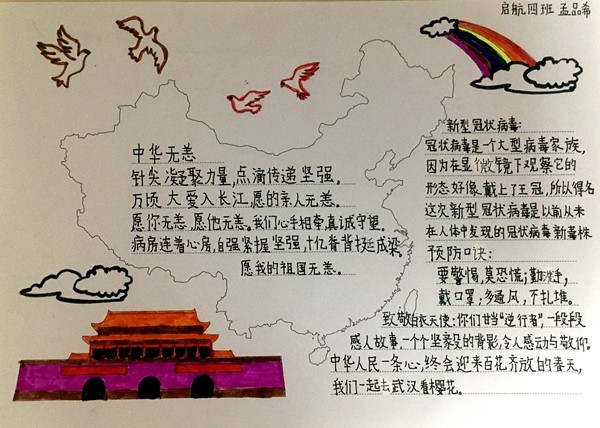 启航四班 孟品希
中华无恙
针尖凝聚力量,点滴传递坚强。
万顷大爱入长江,愿的亲人无恙。
愿你无恙,愿他无恙。我们心手相牵,真诚守望。
病房连着心房,自强紧握坚强,十亿脊背
愿我的祖国无恙。
新型冠状病毒:
冠状病毒是一个大型病毒家族,
因为在显微镜下观察它的
形态好像戴上了王冠,所以得名
这次新型冠状病毒是以前从未
在人体中发现的冠状病毒新毒株
预防口诀:
要警惕,莫恐慌;勤洗手,
戴口罩,多通风,不扎堆。
致敬白衣天使:你们甘当“逆行者”,一段段
感人故事,一个个坚毅的背影,令人感动与敬仰。
中华人民一条心,终会迎来百花齐放的春天,
我们一起去武汉看樱花。